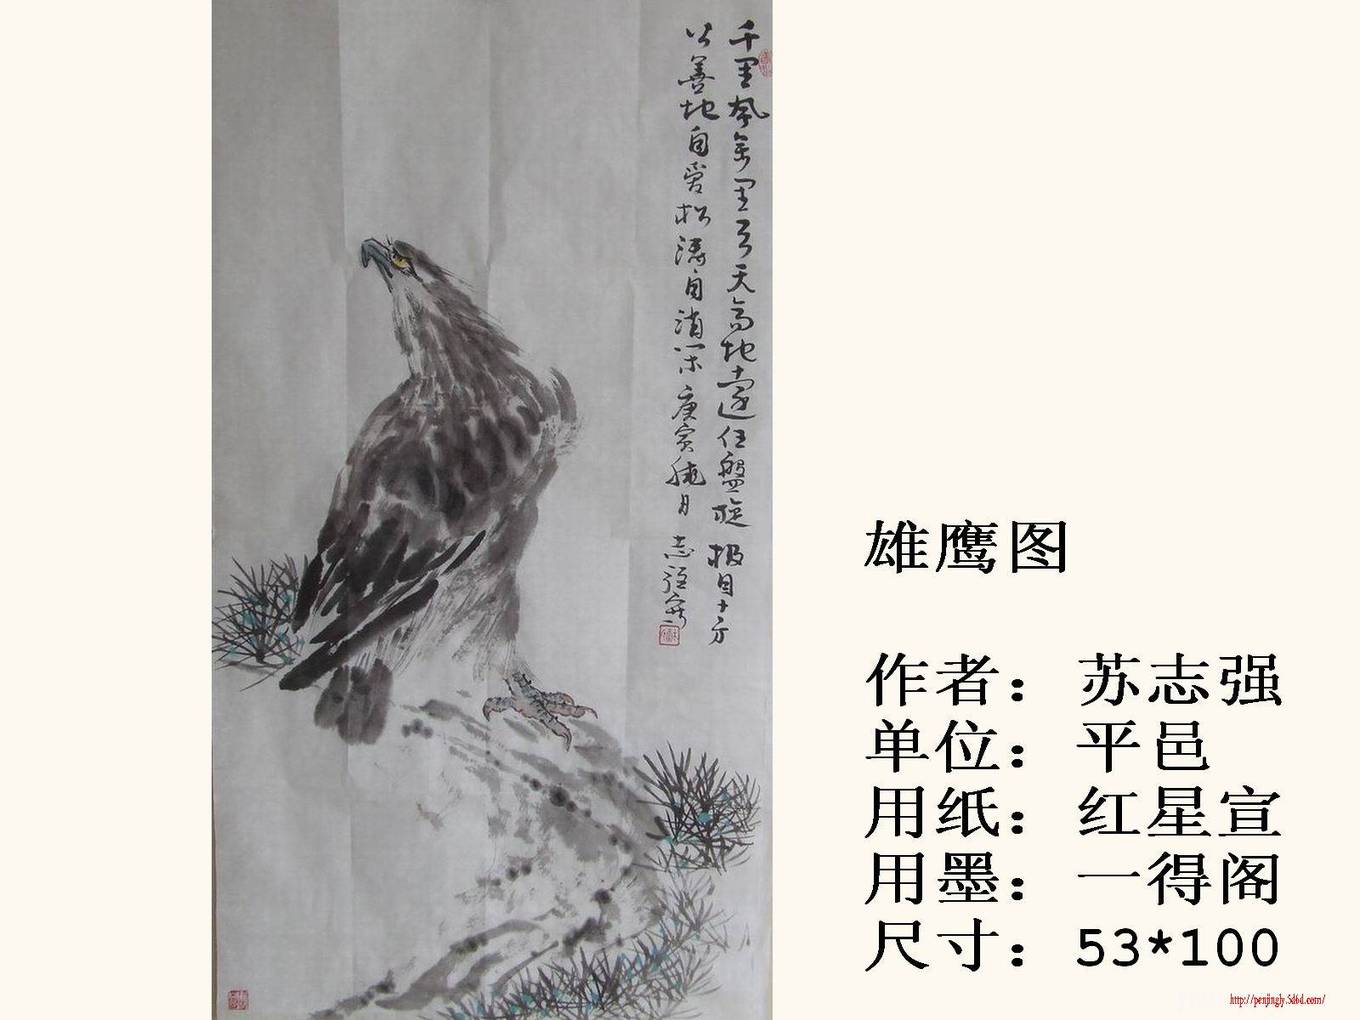 千里风云万里云天高地远任盘旋极目十方
公善地自爱松涛自消闲庚寅晓月志强写
雄鹰图
作者：苏志强
单位：平邑
用纸：红星宣
用墨：一得阁
尺寸：53*100
http://penjingly.5d6d.com/